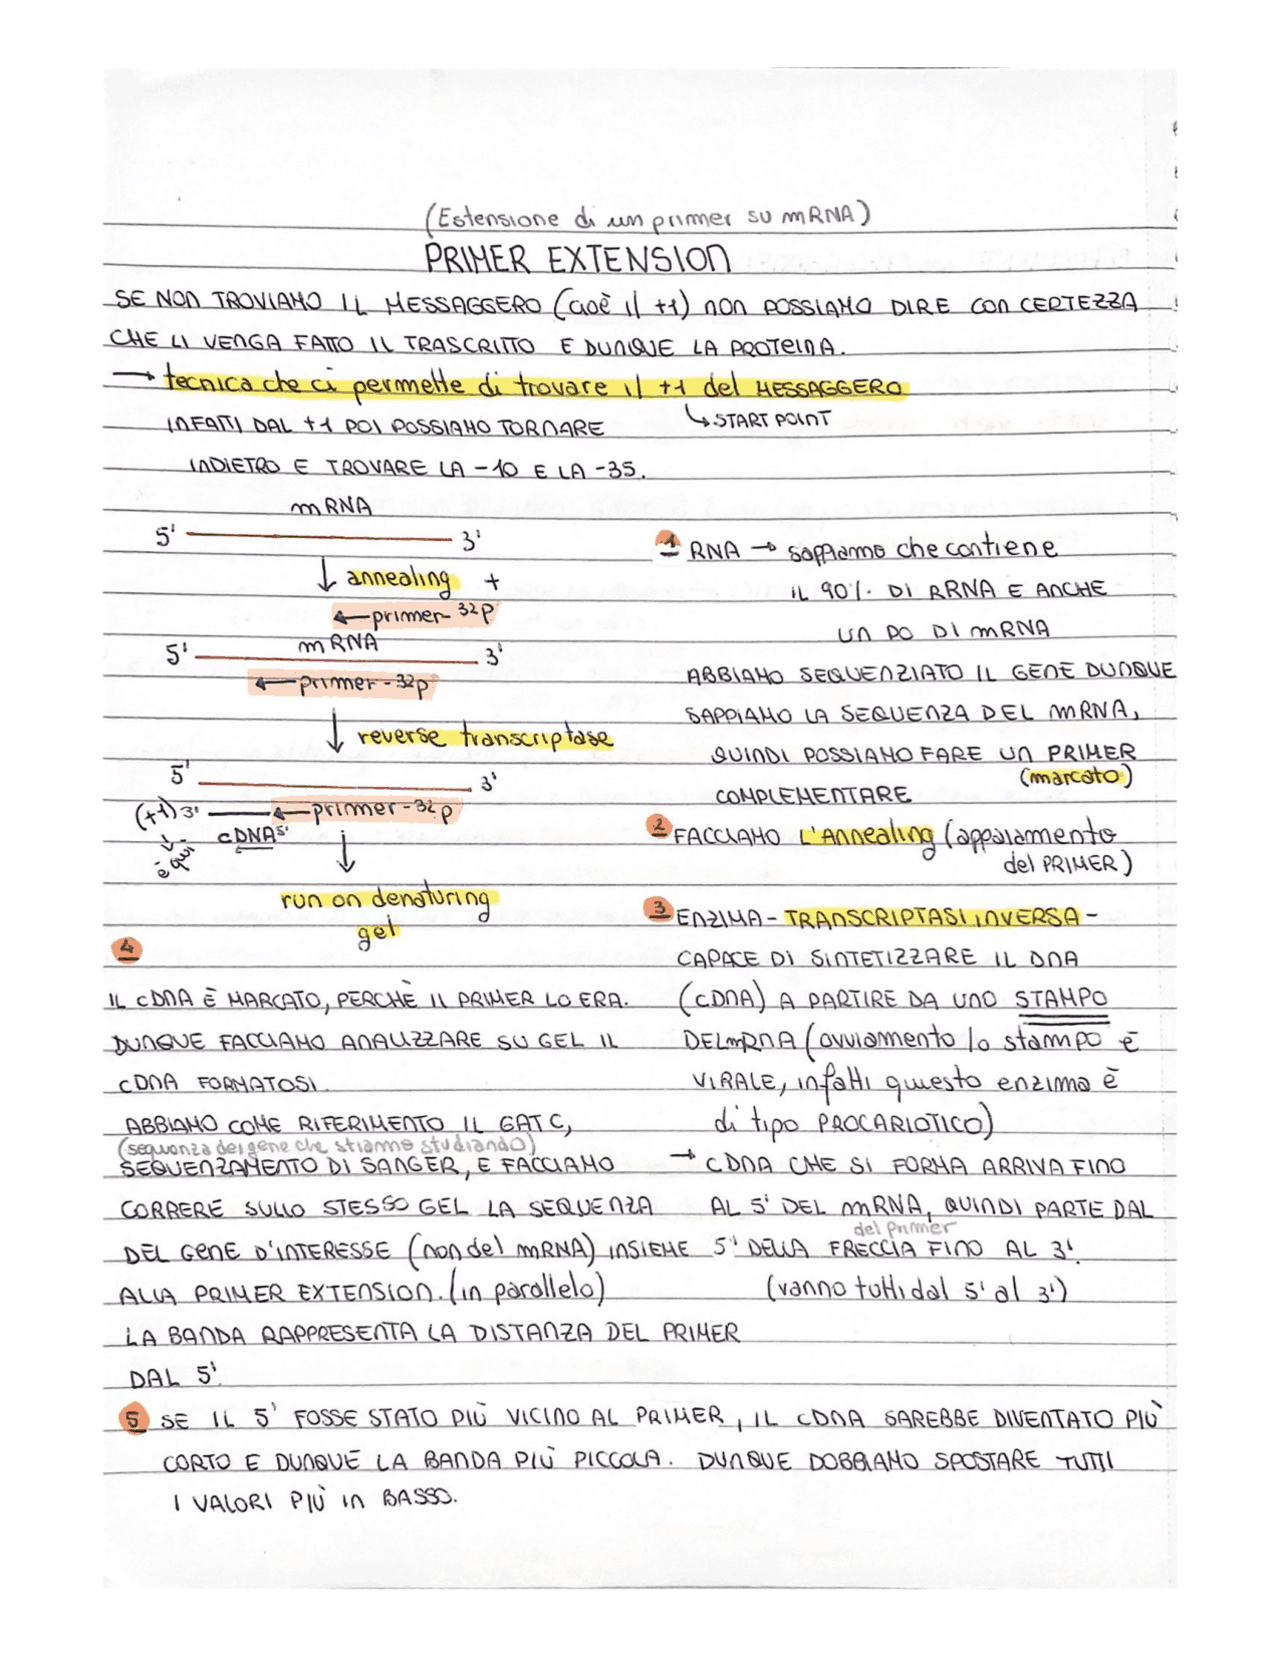 (Estensione di un primer su mRNA)
PRIMER EXTENSION
SE NON TROVIAMO IL MESSAGGERO (cioè il +1) NON POSSIAMO DIRE CON CERTEZZA
CHE LI VENGA FATTO IL TRASCRITTO E DUNQUE LA PROTEINA.
→ tecnica che ci permette di trovare il +1 del MESSAGGERO
↳ START POINT
INFATTI DAL +1 POI POSSIAMO TORNARE
INDIETRO E TROVARE LA -10 E LA -35.
mRNA
5' 3'
↓ annealing +
←primer-32P
mRNA
5' 3'
←primer-32P
↓ reverse transcriptase
5' 3'
(+1) 3' ←primer-32P
cDNA 5'
è qui
↓
run on denaturing
gel
1 RNA → sappiamo che contiene
IL 90% DI RRNA E ANCHE
UN PO DI mRNA
ABBIAMO SEQUENZIATO IL GENE DUNQUE
SAPPIAMO LA SEQUENZA DEL mRNA,
QUINDI POSSIAMO FARE UN PRIMER
(marcato)
COMPLEMENTARE
2 FACCIAMO L'Annealing (appaiamento
del PRIMER)
3 ENZIMA - TRANSCRIPTASI INVERSA -
CAPACE DI SINTETIZZARE IL DNA
(cDNA) A PARTIRE DA UNO STAMPO
DEL mRNA (ovviamento lo stampo è
VIRALE, infatti questo enzima è
di tipo PROCARIOTICO)
→ cDNA CHE SI FORMA ARRIVA FINO
AL 5' DEL mRNA, QUINDI PARTE DAL
del primer
5' DELLA FRECCIA FINO AL 3'.
(vanno tutti dal 5' al 3')
4
IL cDNA È MARCATO, PERCHÈ IL PRIMER LO ERA.
DUNQUE FACCIAMO ANALIZZARE SU GEL IL
cDNA FORMATOSI.
ABBIAMO COME RIFERIMENTO IL GATC,
(sequenza del gene che stiamo studiando)
SEQUENZAMENTO DI SANGER, E FACCIAMO
CORRERE SULLO STESSO GEL LA SEQUENZA
DEL GENE D'INTERESSE (non del mRNA) INSIEME
ALLA PRIMER EXTENSION. (in parallelo)
LA BANDA RAPPRESENTA LA DISTANZA DEL PRIMER
DAL 5'.
5 SE IL 5' FOSSE STATO PIÙ VICINO AL PRIMER, IL cDNA SAREBBE DIVENTATO PIÙ
CORTO E DUNQUE LA BANDA PIÙ PICCOLA. DUNQUE DOBBIAMO SPOSTARE TUTTI
I VALORI PIÙ IN BASSO.